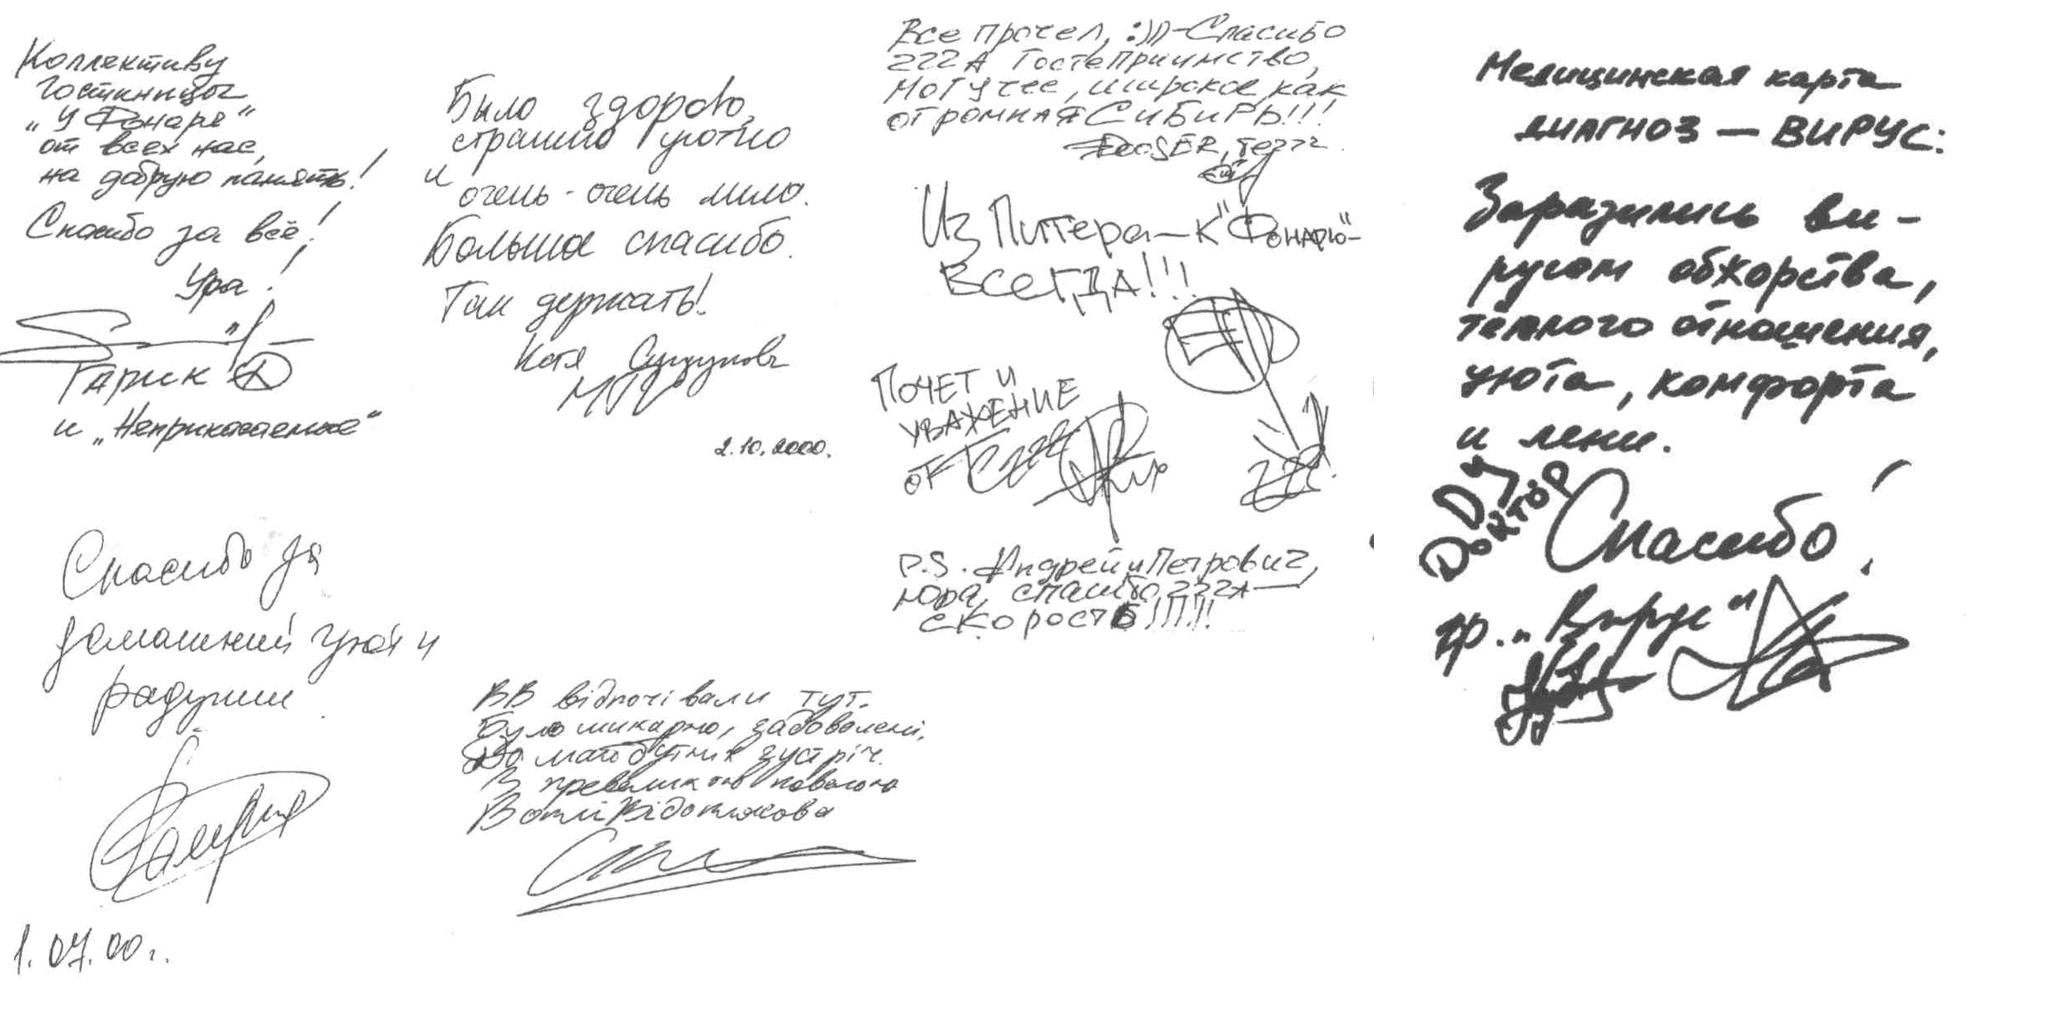 Коллективу
Гостиницы
"У Фонаря"
от всех нас,
на добрую память!
Спасибо за всё!
Ура!
Гарик
и "Неприкасаемые"
Было здорово,
страшно уютно
и очень-очень мило.
Большое спасибо.
Так держать!
Катя
2.10.2000.
Все прочел, :)))-Спасибо
222А Гостеприимство,
могучее, широкое, как
огромная СиБиРЬ!!!
Из Питера-к "Фонарю"-
ВСЕГДА!!!
ПОЧЕТ И
УВАЖЕНИЕ
от
P.S. Андрей и Петрович,
юра, спасибо 222А-
скорость!!!!!
Медицинская карта
ДИАГНОЗ — ВИРУС:
Заразились ви-
русом обжорства,
тёплого отношения,
уюта, комфорта
и лени.
Доктор
Спасибо!
гр. "Вирус"
Спасибо за
домашний уют и
радушие.
1.07.00г.
ВВ вiдпочiвали тут.
Було шикарно, задоволенi.
До майбутнiх зустрiч.
З превеликою повагою